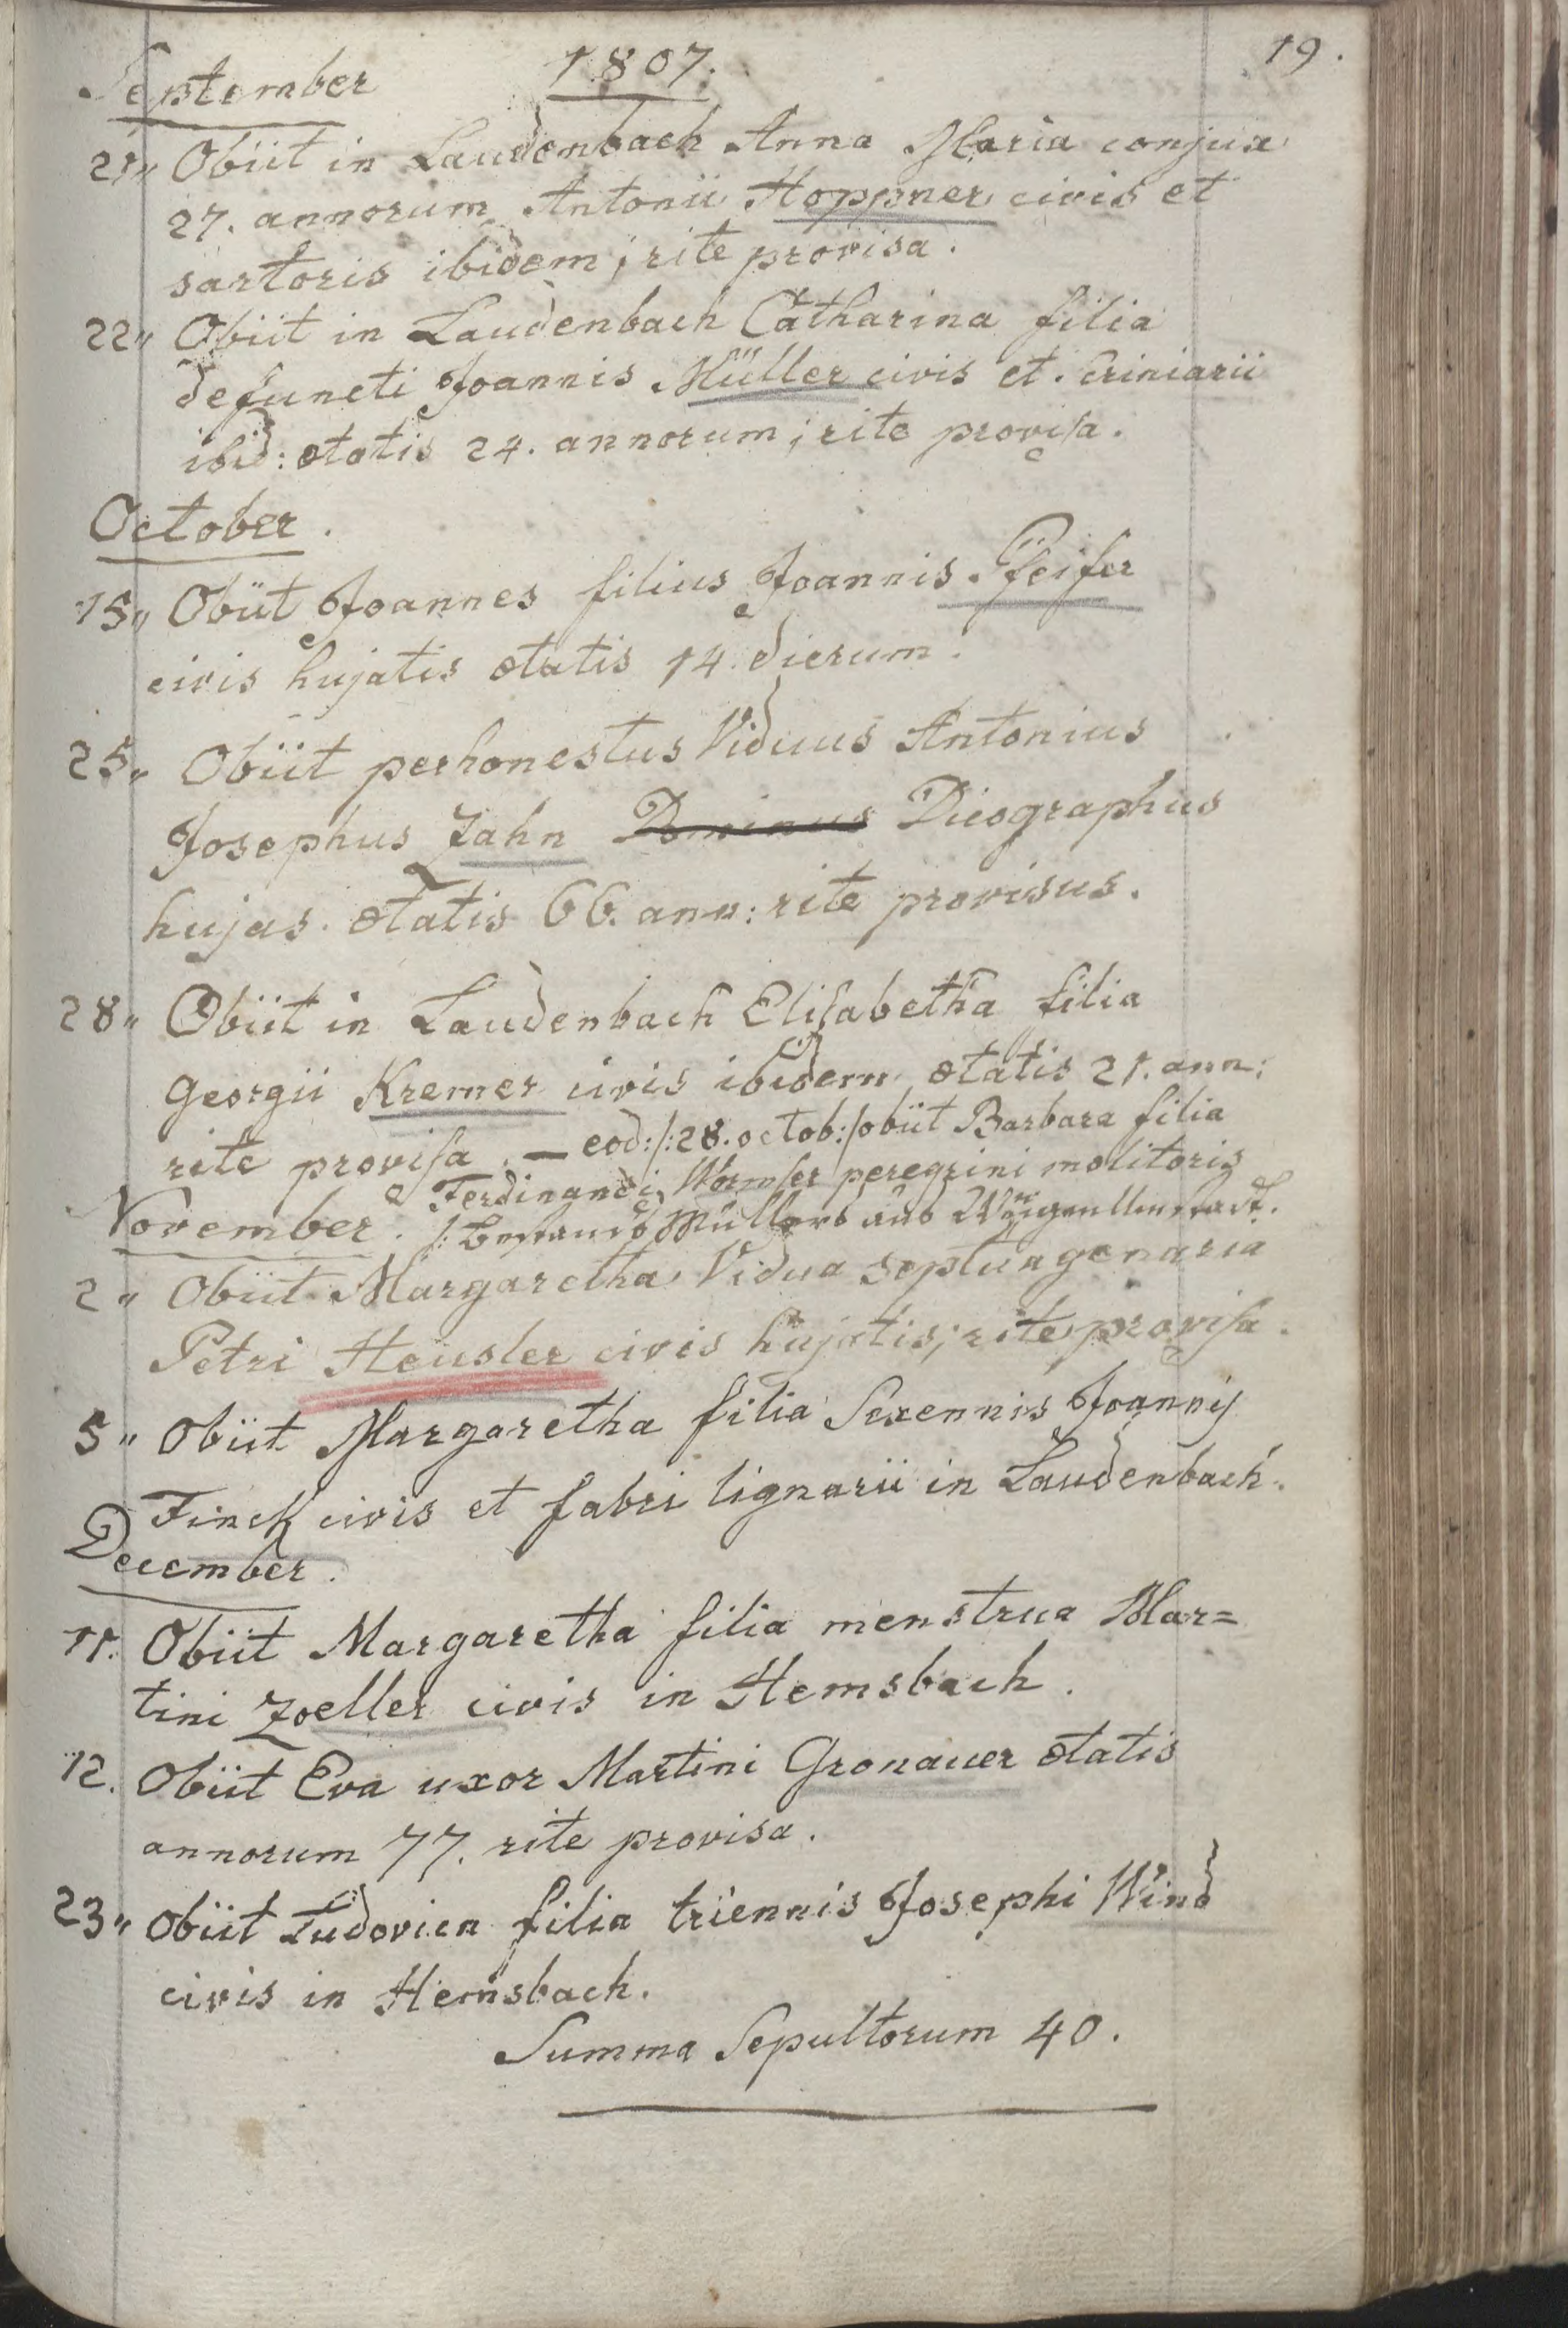 1807.
19.
September
21,, Obiit in Laudenbach Anna Maria conjux
27. annorum Antonii Hoppner civis et
sartoris ibidem; rite provisa.
22,, Obiit in Laudenbach Catharina filia
defuncti Joannis Müller civis et scriniarii
ibid: ætatis 24. annorum; rite provisa.
October.
15,, Obiit Joannes filius Joannis Pfeifer
civis hujatis ætatis 14. dierum.
25,, Obiit perhonestus Viduus Antonius
Josephus Zahn Dominus Dicographus
hujas. ætatis 66. ann: rite provisus.
28,, Obiit in Laudenbach Elisabetha filia
Georgii Kremer civis ibidem ætatis 21. ann:
rite provisa. — eod: /:28. octob:/ obiit Barbara filia
Ferdinandi Wormser peregrini molitoris
November. Müllers aus
2,, Obiit Margaretha Vidua septuagenaria
Petri Heusler civis hujatis; rite provisa.
5,, Obiit Margaretha filia Sexennis Joannis
Finck civis et fabri lignarii in Laudenbach.
December.
11. Obiit Margaretha filia menstrua Mar=
tini Zoeller civis in Hemsbach.
12. Obiit Eva uxor Martini Gronauer ætatis
annorum 77. rite provisa.
23,, Obiit Ludovica filia triennis Josephi Wind
civis in Hemsbach.
Summa Sepultorum 40.